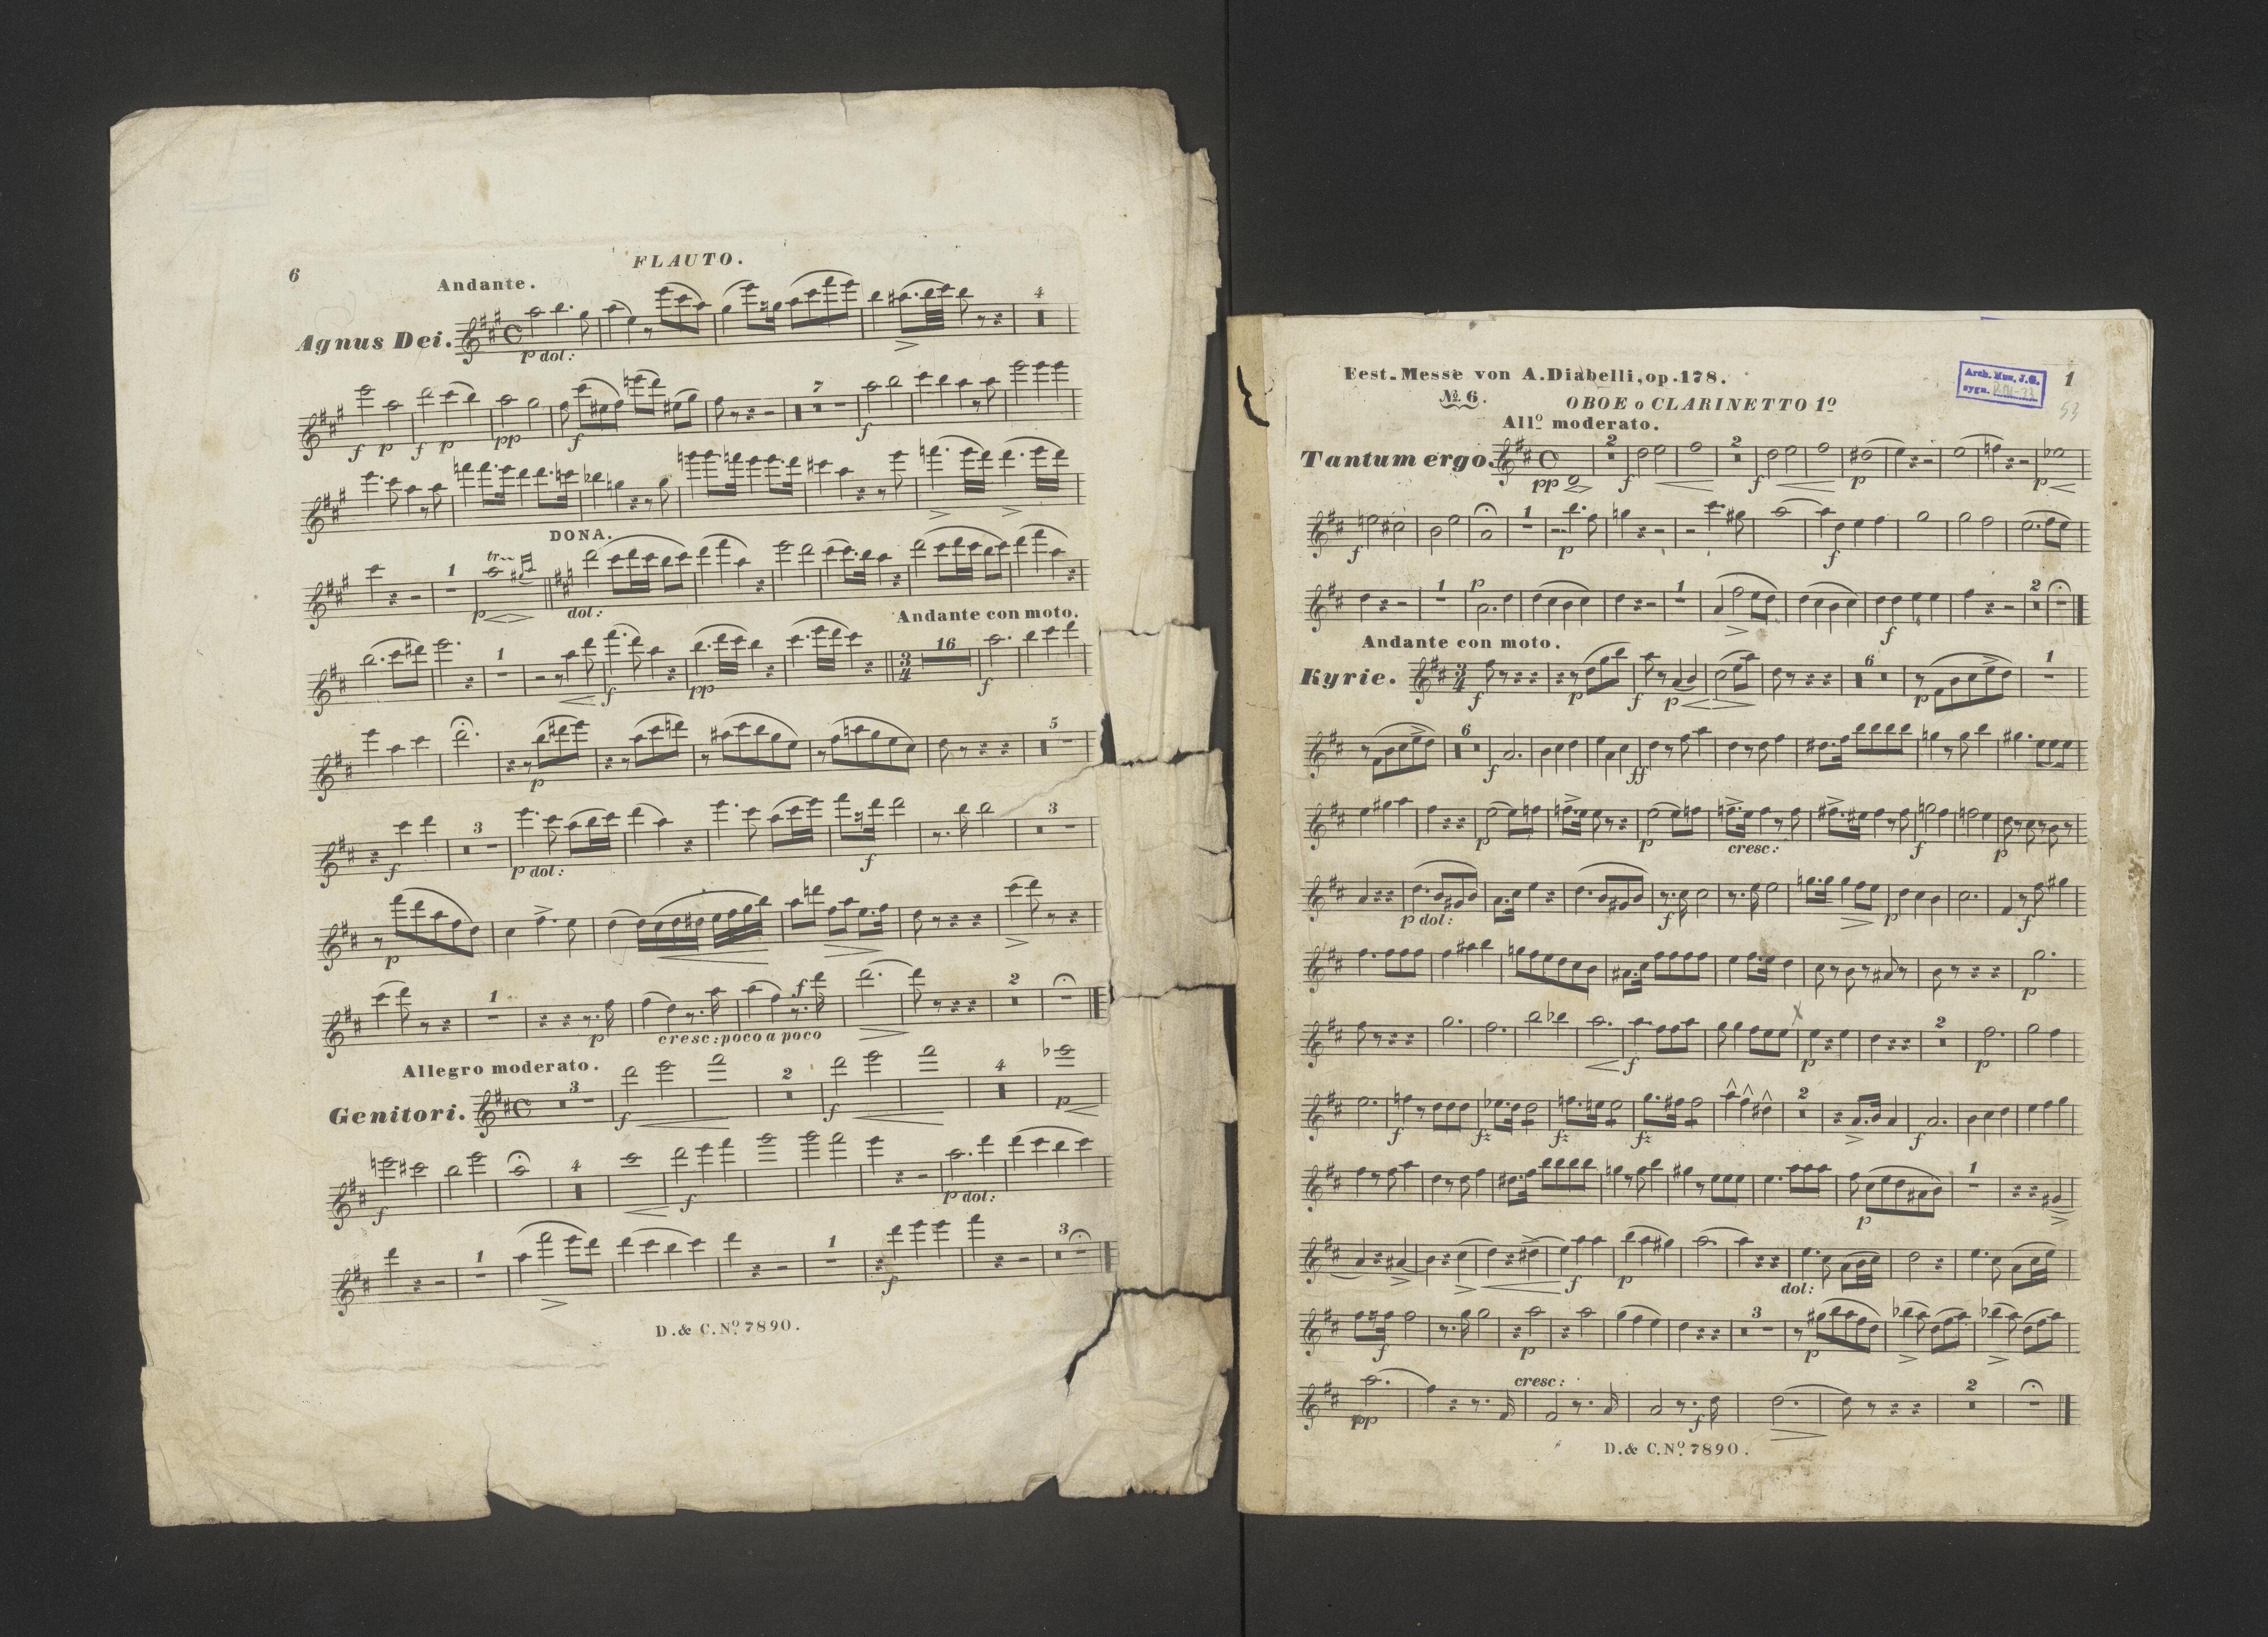 6
FLAUTO.
Andante.
Agnus Dei.
p dol:
4
f p f p pp f
7
f
DONA.
tr
1
p
dol:
Andante con moto.
1
f
pp
16
f
p
5
f
3
p dol:
f
3
p
1
p
cresc: poco a poco
f
2
Allegro moderato.
Genitori.
3
f
2
f
4
p
f
4
f
p dol:
1
1
f
3
D. & C. Nº 7890.
Fest-Messe von A. Diabelli, op. 178.
Arch. Muz. J.G.
sygn.
1
53
Nº 6.
OBOE o CLARINETTO 1º
Allº moderato.
Tantum ergo.
pp
2
f
2
f
p
p
f
1
p
f
1
p
1
f
2
Andante con moto.
Kyrie.
f
p
f
p
6
p
1
6
f
ff
p
p
cresc:
f
p
p dol:
f
p
f
p
f
p
2
p
f
fz
fz
fz
2
f
p
1
f
p
dol:
f
p
3
p
pp
cresc:
f
2
D. & C. Nº 7890.